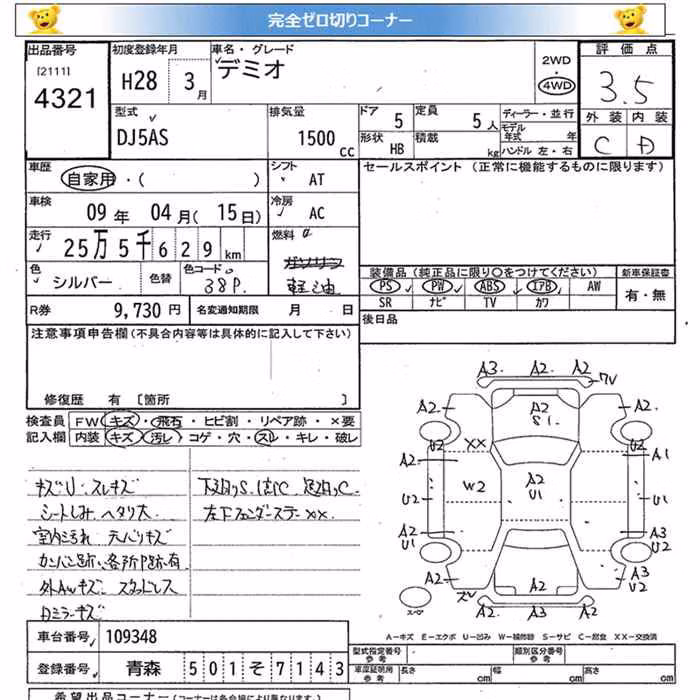 完全ゼロ切りコーナー
出品番号 初度登録年月 車名・グレード 2WD 評価点
[2111] H28 3月 デミオ 4WD 3.5
4321
型式 排気量 ドア 定員 ディーラー・並行 外装 内装
DJ5AS 1500cc 5 5人 モデル年式 年 C D
形状 積載 ハンドル 左・右
HB kg
車歴 シフト セールスポイント (正常に機能するものに限ります)
自家用・( ) AT
車検 冷房
09年 04月(15日) AC
走行 燃料
25万5千629km ガソリン
色 色替 色コード 軽油
シルバー 38P.
装備品(純正品に限り○をつけてください) 新車保証書
PS PW ABS エアB AW 有・無
SR ナビ TV カワ
R券 9,730円 名変通知期限 月 日
後日品
注意事項申告欄(不具合内容等は具体的に記入して下さい)
修復歴 有 [箇所 ]
検査員 FW キズ・飛石・ヒビ割・リペア跡・×要
記入欄 内装 キズ 汚レ・コゲ・穴・スレ・キレ・破レ
キズU・スレキズ 下廻りS.
シートしみ、ヘタリ大 左下フェンダーステーXX.
室内汚れ 天バリキズ
カンバン跡、各所P跡有
外AWキズ スタッドレス
Dミラーキズ
A3. A2. A2
A2. A2 S1. A2.
U2 XX U2
A2 A1
U2 W2 A2 U1 U1
A2 A3
U1 U2
A2 A2 A3 U2
A2 A3 A2
A-キズ E-エクボ U-凹み W-補修跡 S-サビ C-腐食 XX-交換済
車台番号 109348 型式指定番号 参考 類別区分番号 参考
登録番号 青森 501そ7143 車庫証明用 参考 長さ cm 幅 cm 高さ cm
希望出品コーナー(コーナーは各会場により異なります。)